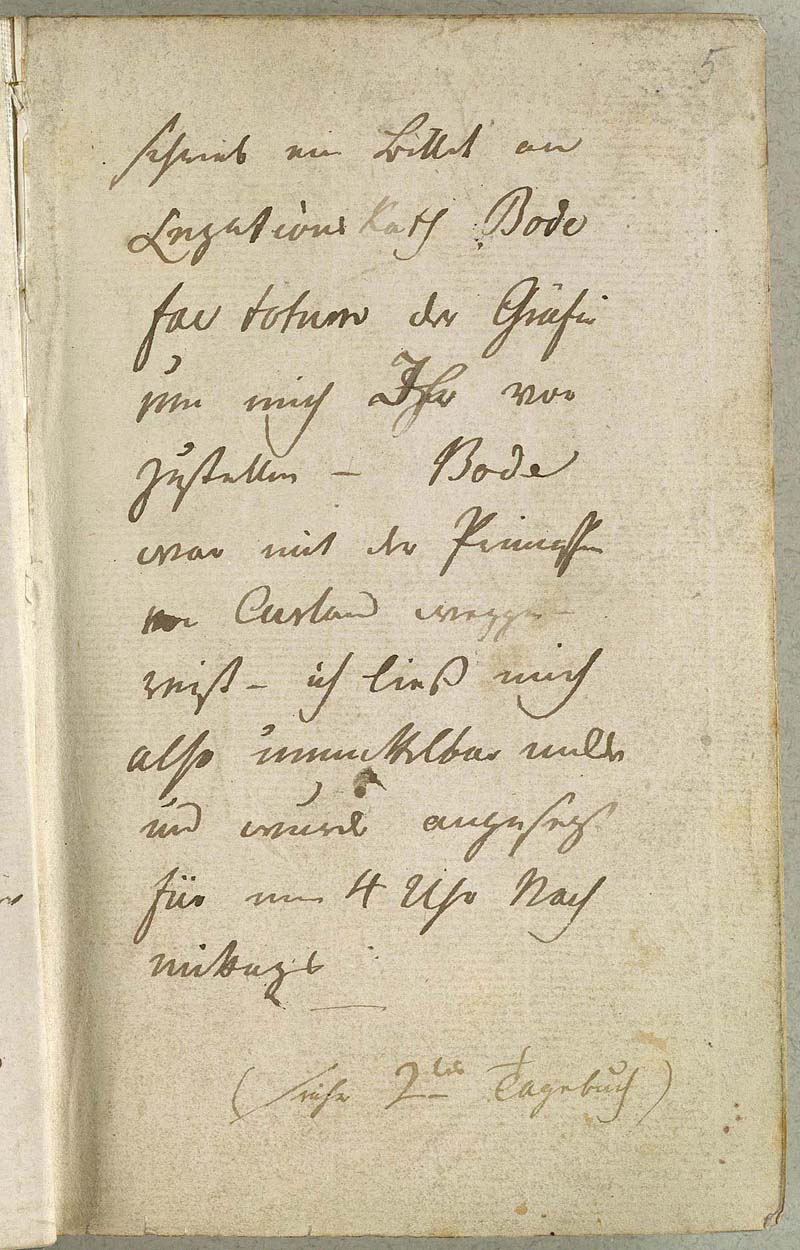 5
schrieb ein Billet an
LegationsRath Bode
fac totum der Gräfin
um mich Ihr vor
zustellen – Bode
war mit der Prinzessin
von Curland wegge-
reist – ich ließ mich
also unmittelbar melden
und wurde angesezt
für um 4 Uhr Nach
mittags
(siehe 2tes Tagebuch)